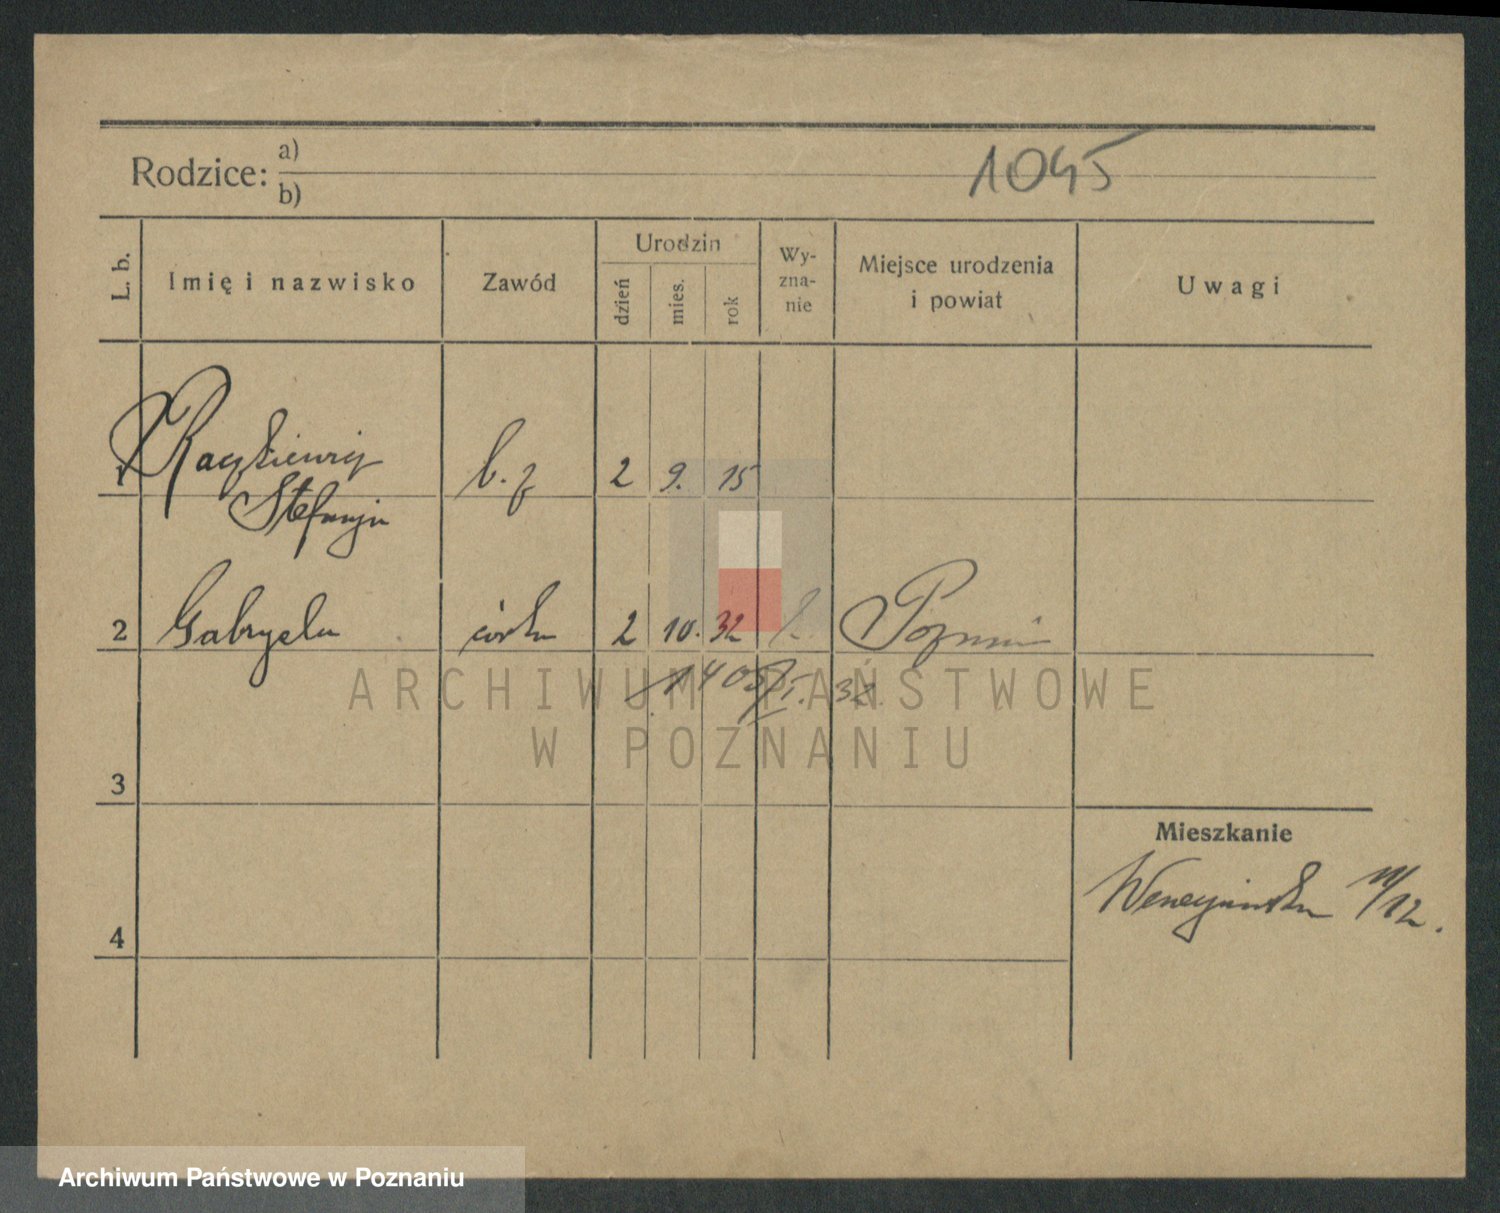 1045
Rodzice: a)
b)
L. b.
Imię i nazwisko
Zawód
Urodzin
dzień
mies.
rok
Wy-
zna-
nie
Miejsce urodzenia
i powiat
Uwagi
1 b. z 2 9. 15
Stefanja
2 Gabryela córka 2 10. 32 Poznań
ARCHIWUM PAŃSTWOWE
W POZNANIU
3
Mieszkanie
11/12.
4
Archiwum Państwowe w Poznaniu